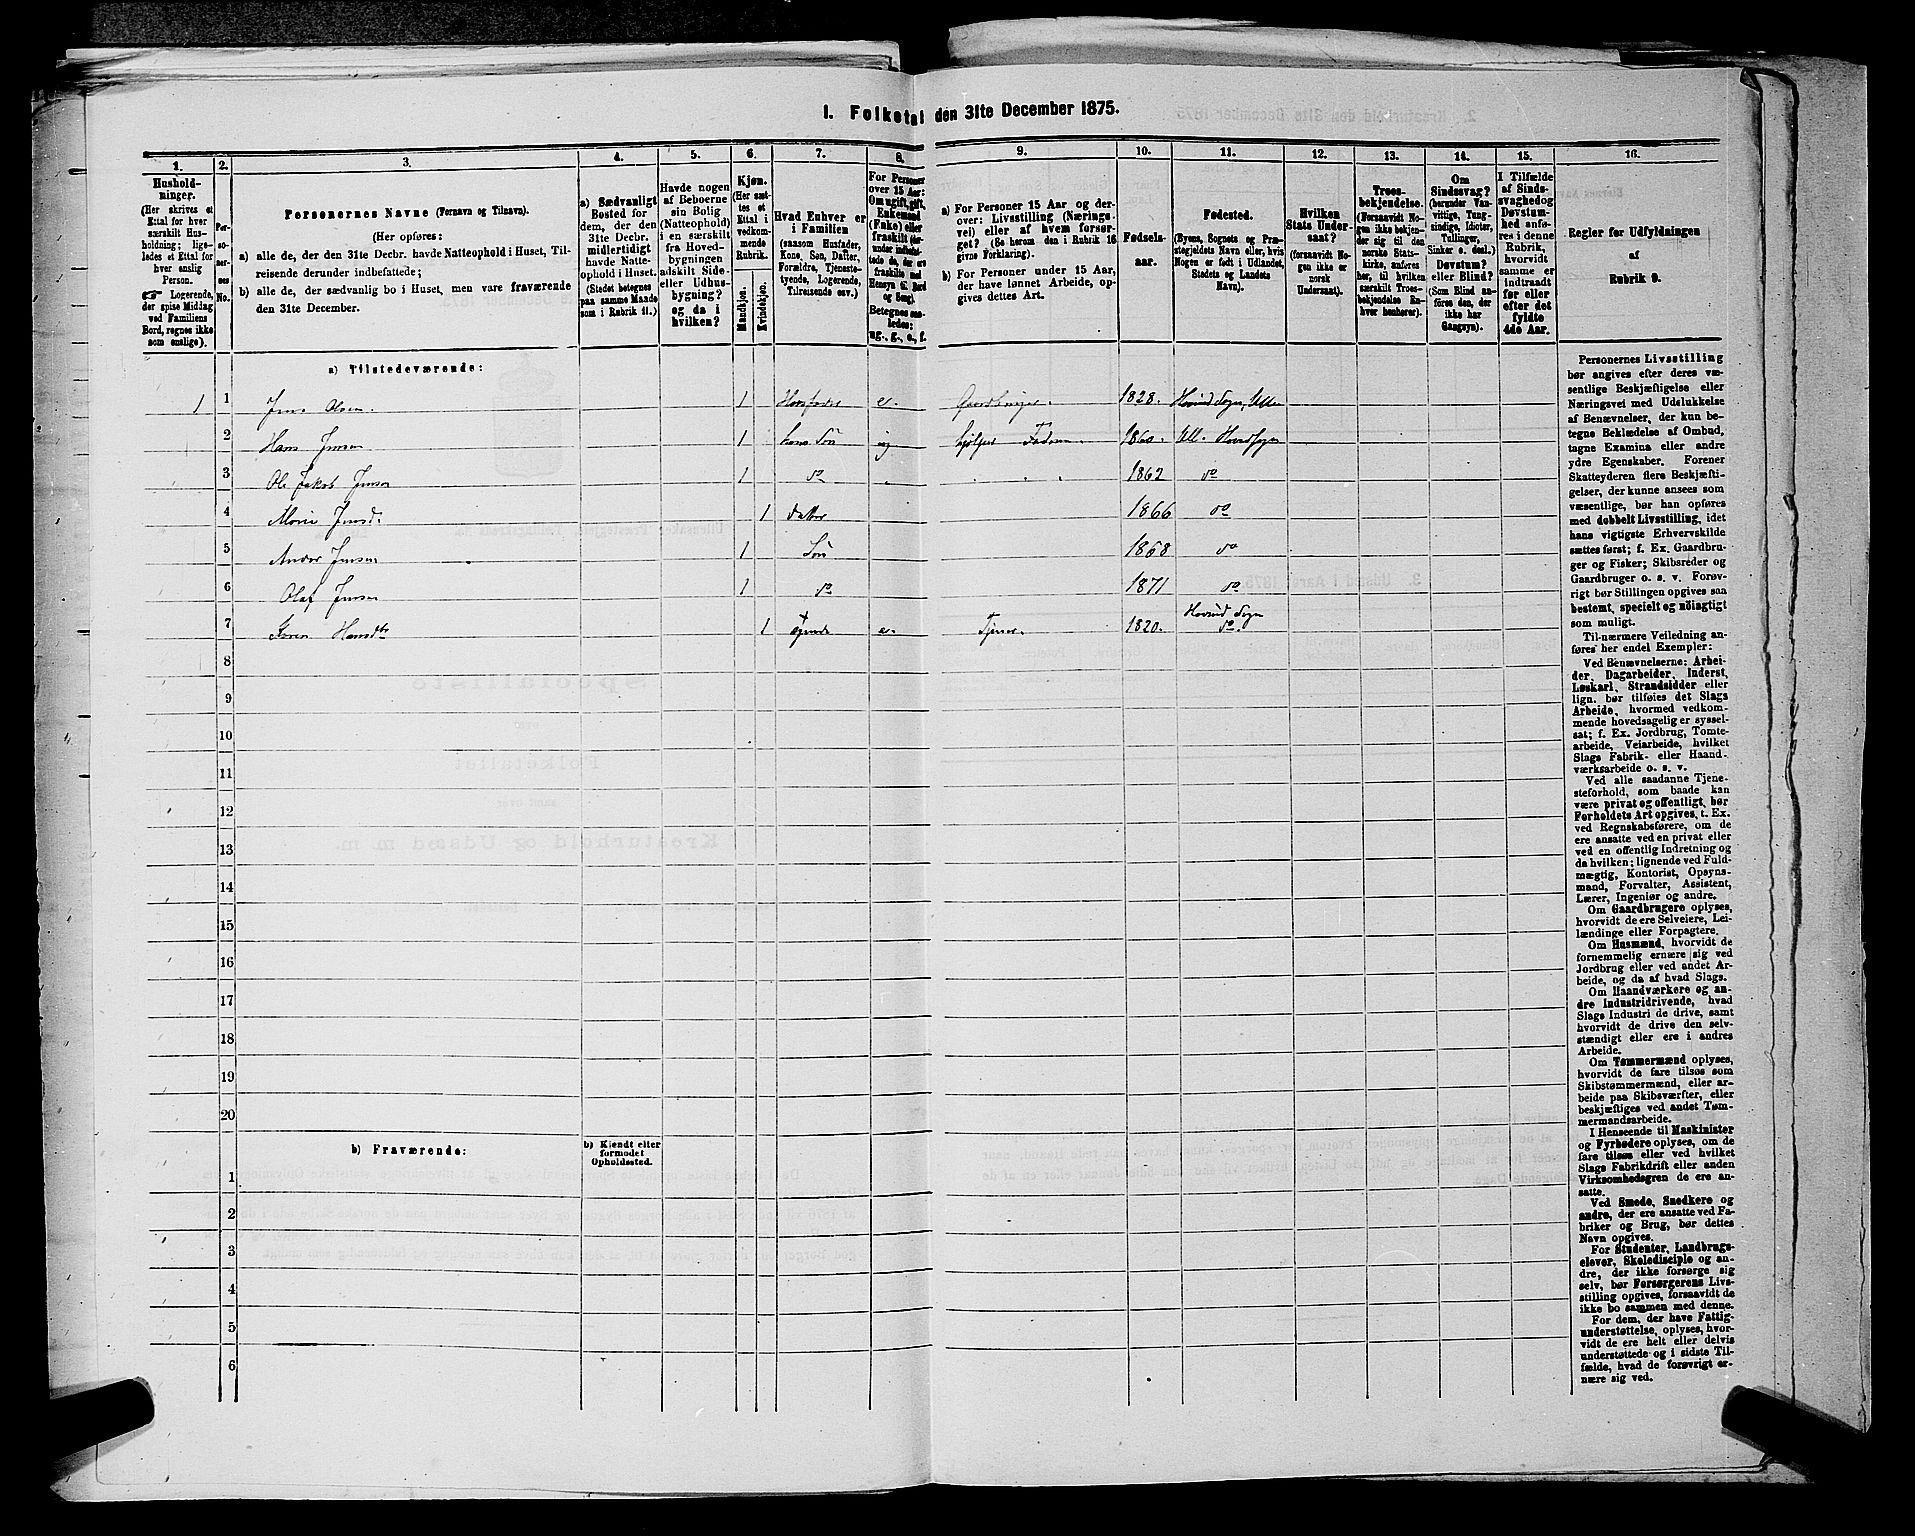 1. Folketal den 31te December 1875.
1. 2. 3. 4. 5. 6. 7. 8. 9. 10. 11. 12. 13. 14. 15. 16.
Husholdninger.
(Her skrives et Ettal for hver særskilt Husholdning; ligeledes et Ettal for hver enslig Person.
☛ Logerende, der spise Middag ved Familiens Bord, regnes ikke som enslige).
Personernes No.
Personernes Navne (Fornavn og Tilnavn).
(Her opføres:
a) alle de, der den 31te Decbr. havde Natteophold i Huset, Tilreisende derunder indbefattede;
b) alle de, der sædvanlig bo i Huset, men vare fraværende den 31te December.
a) Sædvanligt Bosted for dem, der den 31te Decbr. midlertidigt havde Natteophold i Huset.
(Stedet betegnes paa samme Maade som i Rubrik 11.)
Havde nogen af Beboerne sin Bolig (Natteophold) i en særskilt fra Hovedbygningen adskilt Side- eller Udhusbygning? og da i hvilken?
Kjøn.
(Her sættes et Ettal i vedkommende Rubrik.
Mandkjøn.
Kvindekjøn.
Hvad Enhver er i Familien
(saasom Husfader, Kone, Søn, Datter, Forældre, Tjenestetyende, Logerende, Tilreisende osv.)
For Personer over 15 Aar: Om ugift, gift, Enkemand (Enke) eller fraskilt
Betegnes saaledes: ug., g., e., f.
a) For Personer 15 Aar og derover: Livsstilling (Næringsvei) eller af hvem forsørget? (Se herom den i Rubrik 16 givne Forklaring).
b) For Personer under 15 Aar, der have lønnet Arbeide, opgives dettes Art.
Fødselsaar.
Fødested.
(Byens, Sognets og Præstegjeldets Navn eller, hvis Nogen er født i Udlandet, Stedets og Landets Navn).
Hvilken Stats Undersaat?
(forsaavidt Nogen ikke er norsk Undersaat).
Troesbekjendelse.
(Forsaavidt Nogen ikke bekjender sig til den norske Statskirke, anføres her, til hvilken særskilt Troesbekjendelse Enhver henhører).
Om Sindssvag?
(herunder Vanvittige, Tungsindige, Idioter, Tullinger, Sinker o. desl.).
Døvstum? eller Blind?
(Som Blind anføres den, der ikke har Gangsyn).
I Tilfælde af Sindssvaghed og Døvstumhed anføres i denne Rubrik, hvorvidt samme er indtraadt før eller efter det fyldte 4de Aar.
Regler for Udfyldningen af Rubrik 9.
a) Tilstedeværende:
1 1 Jens Olsen. 1 Husfader e. Gaardbruger. 1828. Hovind Sogn, Ullen
2 Hans Jensen 1 hans Søn ug hjelper Faderen. 1860. Ull. Hovindsogn
3 Ole Jakob Jensen 1 do 1862 do
4 Marie Jensd. 1 datter 1866 do
5 Jensen 1 Søn 1868 do
6 Olaf Jensen 1 do 1871 do
7 Karen Hansdtr 1 e. Tjener. 1820. Hovind Sogn do.
8
9
10
11
12
13
14
15
16
17
18
19
20
b) Fraværende:
b) Kjendt eller formodet Opholdssted.
1
2
3
4
5
6
Personernes Livsstilling
bør angives efter deres væ-
sentlige Beskjæftigelse eller
Næringsvei med Udelukkelse
af Benævnelser, der kun be-
tegne Beklædelse af Ombud,
tagne Examina eller andre
ydre Egenskaber. Forener
Skatteyderen flere Beskjæfti-
gelser, der kunne ansees som
væsentlige, bør han opføres
med dobbelt Livsstilling, idet
hans vigtigste Erhvervskilde
sættes først; f. Ex. Gaardbru-
ger og Fisker; Skibsreder og
Gaardbruger o. s. v. Forøv-
rigt bør Stillingen opgives saa
bestemt, specielt og nöiagtigt
som muligt.
Til nærmere Veiledning an-
føres her endel Exempler:
Ved Benævnelserne: Arbei-
der, Dagarbeider, Inderst,
Løskarl, Strandsidder eller
lign. bør tilføies det Slags
Arbeide, hvormed vedkom-
mende hovedsagelig er syssel-
sat; f. Ex. Jordbrug, Tomte-
arbeide, Veiarbeide, hvilket
Slags Fabrik- eller Haand-
værksarbeide o. s. v.
Ved alle saadanne Tjene-
steforhold, som baade kan
være privat og offentligt, bør
Forholdets Art opgives, t. Ex.
ved Regnskabsførere, om de
ere ansatte ved en privat eller
ved en offentlig Indretning og
da hvilken; lignende ved Fuld-
mægtig, Kontorist, Opsyns-
mand, Forvalter, Assistent,
Lærer, Ingeniør og andre.
Om Gaardbrugere oplyses,
hvorvidt de ere Selveiere, Lei-
lændinge eller Forpagtere.
Om Husmænd, hvorvidt de
fornemmelig ernære sig ved
Jordbrug eller ved andet Ar-
beide, og da af hvad Slags.
Om Haandværkere og an-
dre Industridrivende, hvad
Slags Industri de drive, samt
hvorvidt de drive den selv-
stændigt eller ere i andres
Arbeide.
Om Tømmermænd oplyses,
hvorvidt de fare tilsøs som
Skibstømmermænd, eller ar-
beide paa Skibsværfter, eller
beskjæftiges ved andet Tøm-
mermandsarbeide.
I Henseende til Maskinister
og Fyrbødere oplyses, om de
fare tilsøs eller ved hvilket
Slags Fabrikdrift eller anden
Virksomhedsgren de ere an-
satte.
Ved Smede, Snedkere og
andre, der ere ansatte ved Fa-
briker og Brug, bør dettes
Navn opgives.
For Studenter, Landbrugs-
elever, Skoledisciple og an-
dre, der ikke forsørge sig
selv, bør Forsørgerens Livs-
stilling opgives, forsaavidt de
ikke bo sammen med denne.
For dem, der have Fattig-
understøttelse, oplyses, hvor-
vidt de ere helt eller delvis
understøttede og i sidste Til-
fælde, hvad de forøvrigt er-
nære sig ved.